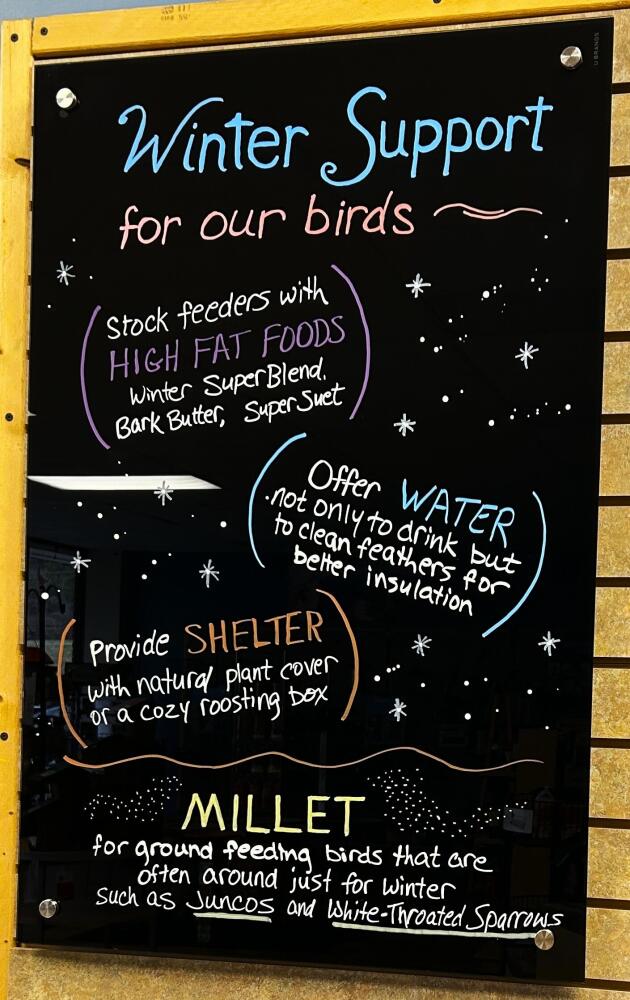 Winter Support
for our birds
Stock feeders with
HIGH FAT FOODS
Winter SuperBlend,
Bark Butter, SuperSuet
Offer WATER
not only to drink but
to clean feathers for
better insulation
Provide SHELTER
with natural plant cover
or a cozy roosting box
MILLET
for ground feeding birds that are
often around just for winter
such as Juncos and White-Throated Sparrows
U BRANDS